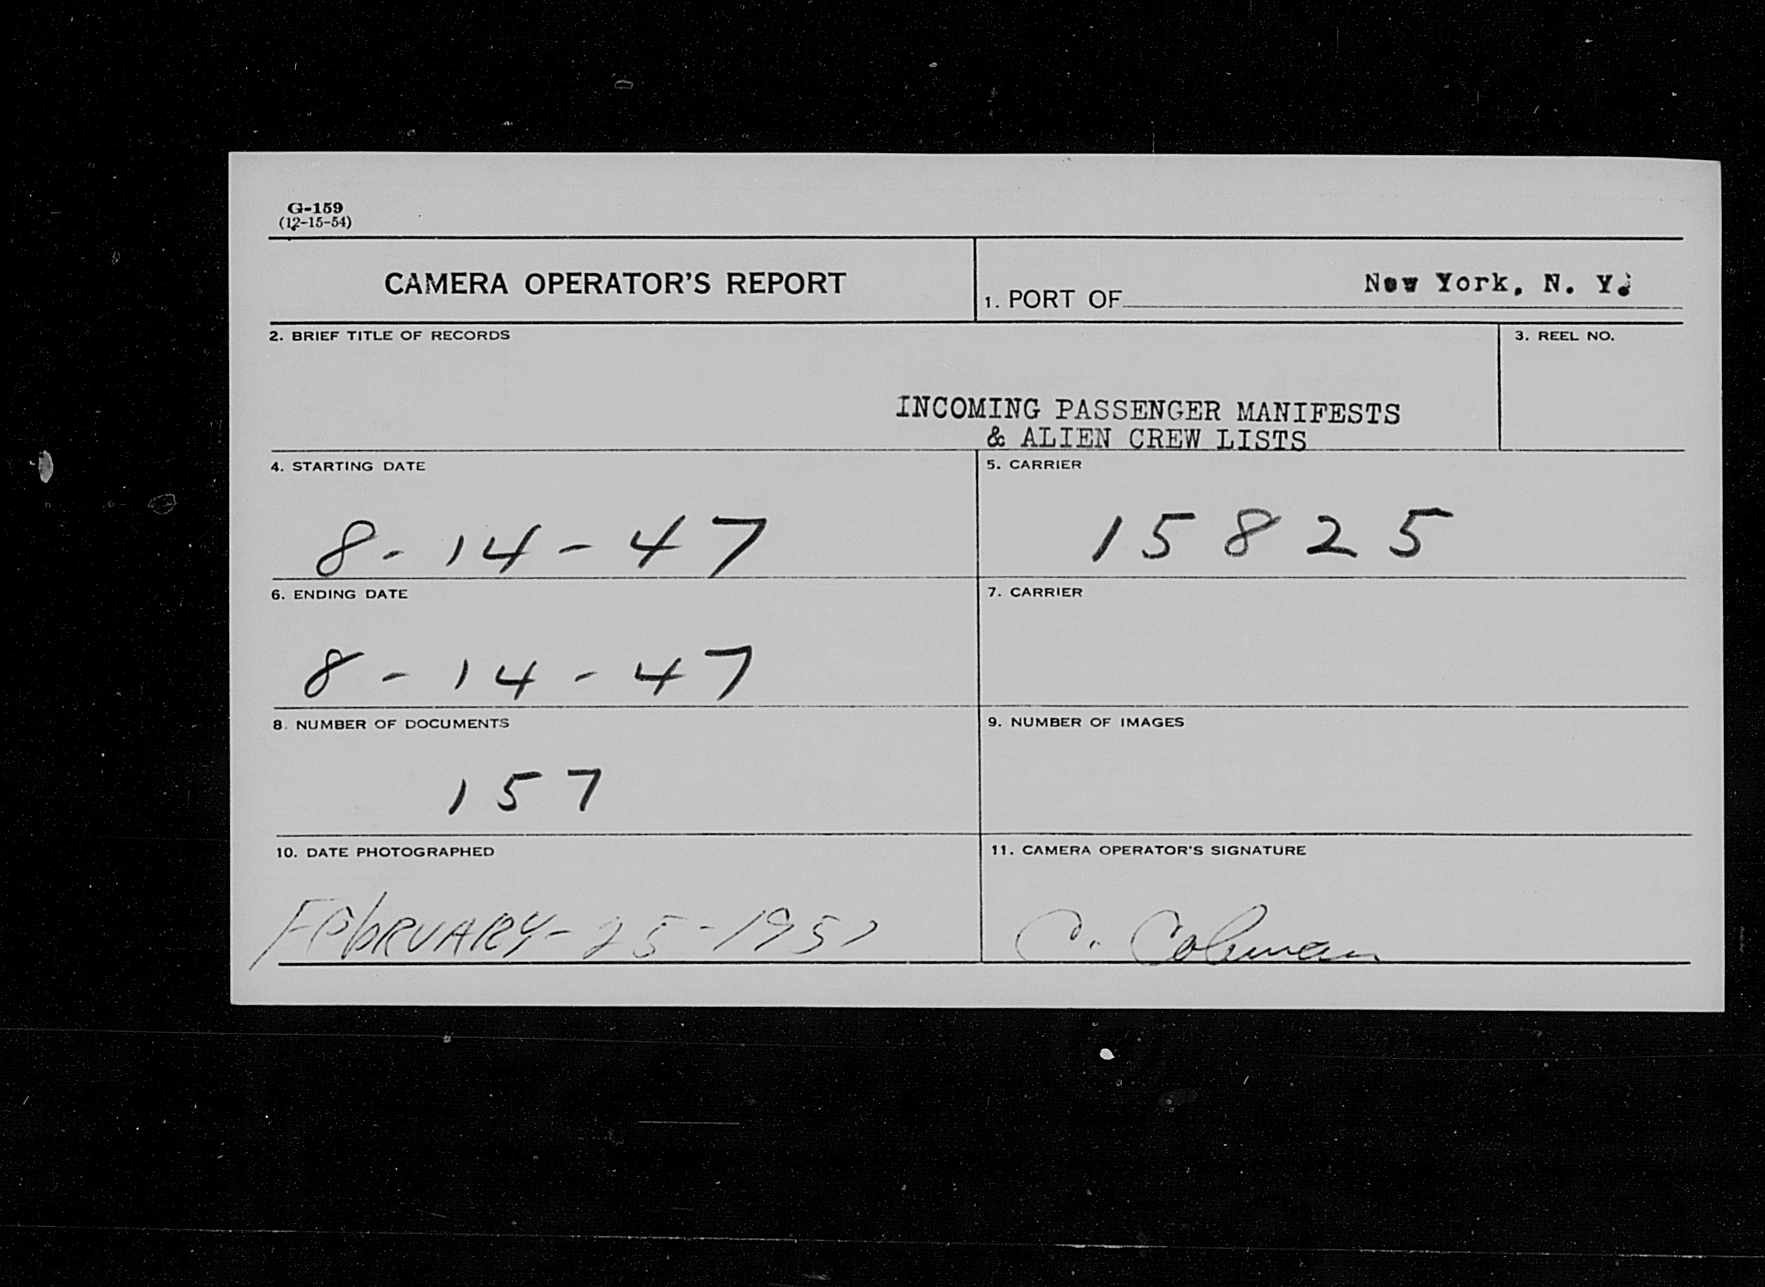 G-159
(12-15-54)
CAMERA OPERATOR'S REPORT
1. PORT OF New York, N. Y.
2. BRIEF TITLE OF RECORDS
3. REEL NO.
INCOMING PASSENGER MANIFESTS
& ALIEN CREW LISTS
4. STARTING DATE
8-14-47
5. CARRIER
15825
6. ENDING DATE
8-14-47
7. CARRIER
8. NUMBER OF DOCUMENTS
157
9. NUMBER OF IMAGES
10. DATE PHOTOGRAPHED
FEbRUARY-25-
11. CAMERA OPERATOR'S SIGNATURE
C. Coleman